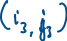 (i₃, j₃)